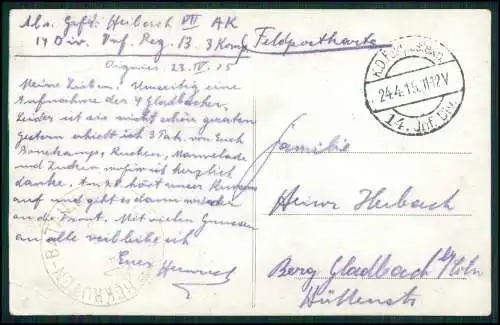 Abs. Gefr. Heinrich Herbach VII AK
14 Div. Inf. Reg. 13. 3 Komp. Feldpostkarte
23. IV. 15
Meine Lieben! Umseitig eine
Aufnahme der 4 Gladbacher,
Leider ist sie nicht schön geraten
Gestern erhielt ich 3 Pak. von Euch
Kuchen, Marmelade
und Zucker, wofür ich herzlich
danke. Am hört unser Kursus
auf und geht es dann wieder
an die Front. Mit vielen Grüssen
an alle verbleibe ich
Euer Heinrich
24.4.15.11-12V
14. Inf. Div.
REKRUTEN-B
Familie
Heinr Herbach
Berg Gladbach b/Cöln
Hüttenstr